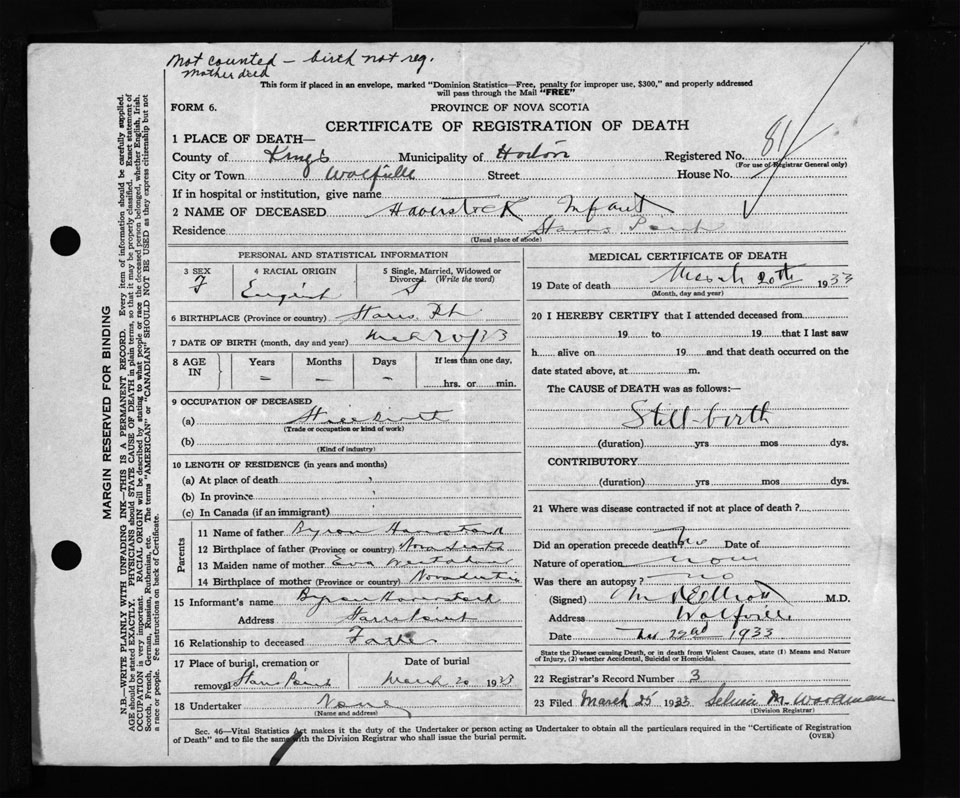 Not counted - birth not reg.
Mother died
This form if placed in an envelope, marked "Dominion Statistics—Free, penalty for improper use, $300," and properly addressed
will pass through the Mail "FREE"
FORM 6.
PROVINCE OF NOVA SCOTIA
CERTIFICATE OF REGISTRATION OF DEATH
1 PLACE OF DEATH—
County of Kings Municipality of Horton Registered No. 81
(For use of Registrar General only)
City or Town Wolfville Street House No.
If in hospital or institution, give name
2 NAME OF DECEASED Haverstock Infant
Residence
(Usual place of abode)
PERSONAL AND STATISTICAL INFORMATION
3 SEX 4 RACIAL ORIGIN 5 Single, Married, Widowed or Divorced. (Write the word)
F English S
6 BIRTHPLACE (Province or country)
7 DATE OF BIRTH (month, day and year) Mch 20/33
8 AGE IN Years Months Days If less than one day,
– – – hrs. or min.
9 OCCUPATION OF DECEASED
(a) Still Birth
(Trade or occupation or kind of work)
(b)
(Kind of industry)
10 LENGTH OF RESIDENCE (in years and months)
(a) At place of death
(b) In province
(c) In Canada (if an immigrant)
Parents
11 Name of father Byron Haverstock
12 Birthplace of father (Province or country) Nova Scotia
13 Maiden name of mother Eva
14 Birthplace of mother (Province or country) Nova Scotia
15 Informant's name Byron Haverstock
Address
16 Relationship to deceased Father
17 Place of burial, cremation or removal Date of burial
March 20 1933
18 Undertaker None
(Name and address)
MEDICAL CERTIFICATE OF DEATH
19 Date of death March 20th 1933
(Month, day and year)
20 I HEREBY CERTIFY that I attended deceased from
19 to 19 that I last saw
h alive on 19 and that death occurred on the
date stated above, at m.
The CAUSE of DEATH was as follows:—
Still-birth
(duration) yrs mos dys.
CONTRIBUTORY
(duration) yrs mos dys.
21 Where was disease contracted if not at place of death?
Did an operation precede death? No Date of
Nature of operation none
Was there an autopsy? no
(Signed) M.D.
Address Wolfville
Date Mar 22nd 1933
State the Disease causing Death, or in death from Violent Causes, state (1) Means and Nature of Injury, (2) whether Accidental, Suicidal or Homicidal.
22 Registrar's Record Number 3
23 Filed March 25 1933 M. Woodman
(Division Registrar)
Sec. 46—Vital Statistics Act makes it the duty of the Undertaker or person acting as Undertaker to obtain all the particulars required in the "Certificate of Registration
of Death" and to file the same with the Division Registrar who shall issue the burial permit.
(OVER)
MARGIN RESERVED FOR BINDING
N.B.—WRITE PLAINLY WITH UNFADING INK—THIS IS A PERMANENT RECORD. Every item of information should be carefully supplied.
AGE should be stated EXACTLY. PHYSICIANS should STATE CAUSE OF DEATH in plain terms, so that it may be properly classified. Exact statement of
OCCUPATION is very important. RACIAL ORIGIN will be described by stating to what people or race the deceased person belonged, whether English, Irish,
Scotch, French, German, Russian, Ruthenian, etc. The terms "AMERICAN" or "CANADIAN" SHOULD NOT BE USED as they express citizenship but not
a race or people. Fee instructions on back of Certificate.